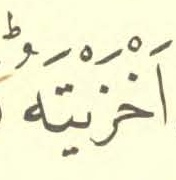 اَخْزَيْتَهُ ؕ